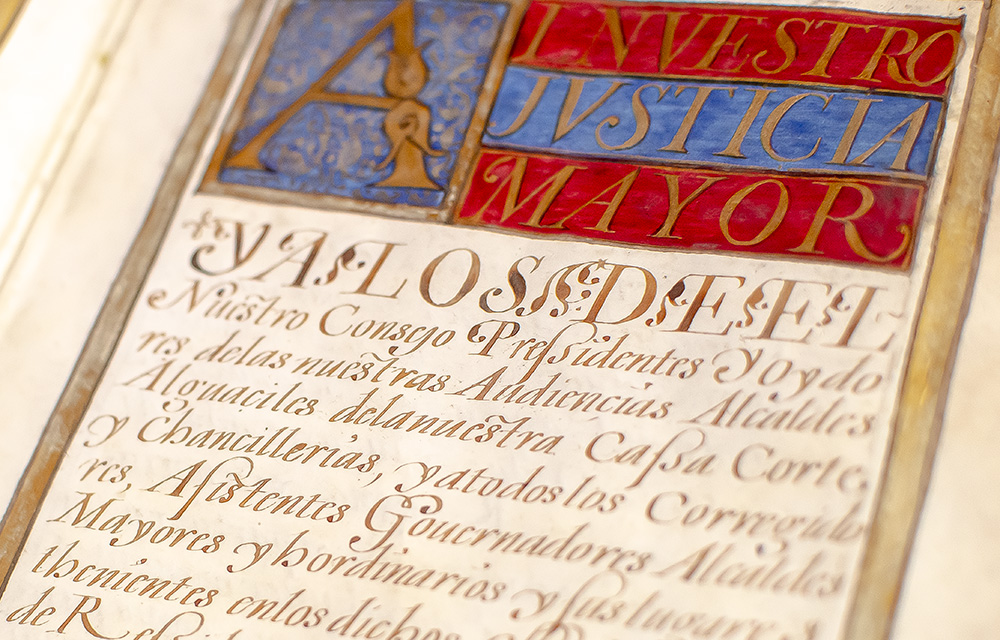 A NVESTRO
JVSTICIA
MAYOR
YALOSDEEL
Nuestro Consejo Pressidentes Yoydo
res delas nuestras Audiencias Alcaldes
Alguaciles delanuestra Cassa Corte,
y Chancillerias, yatodoslos Corregido
res, Assistentes Gouernadores Alcaldes
Mayores yhordinarios ysus lugares
thenientes enlos dichos
de R